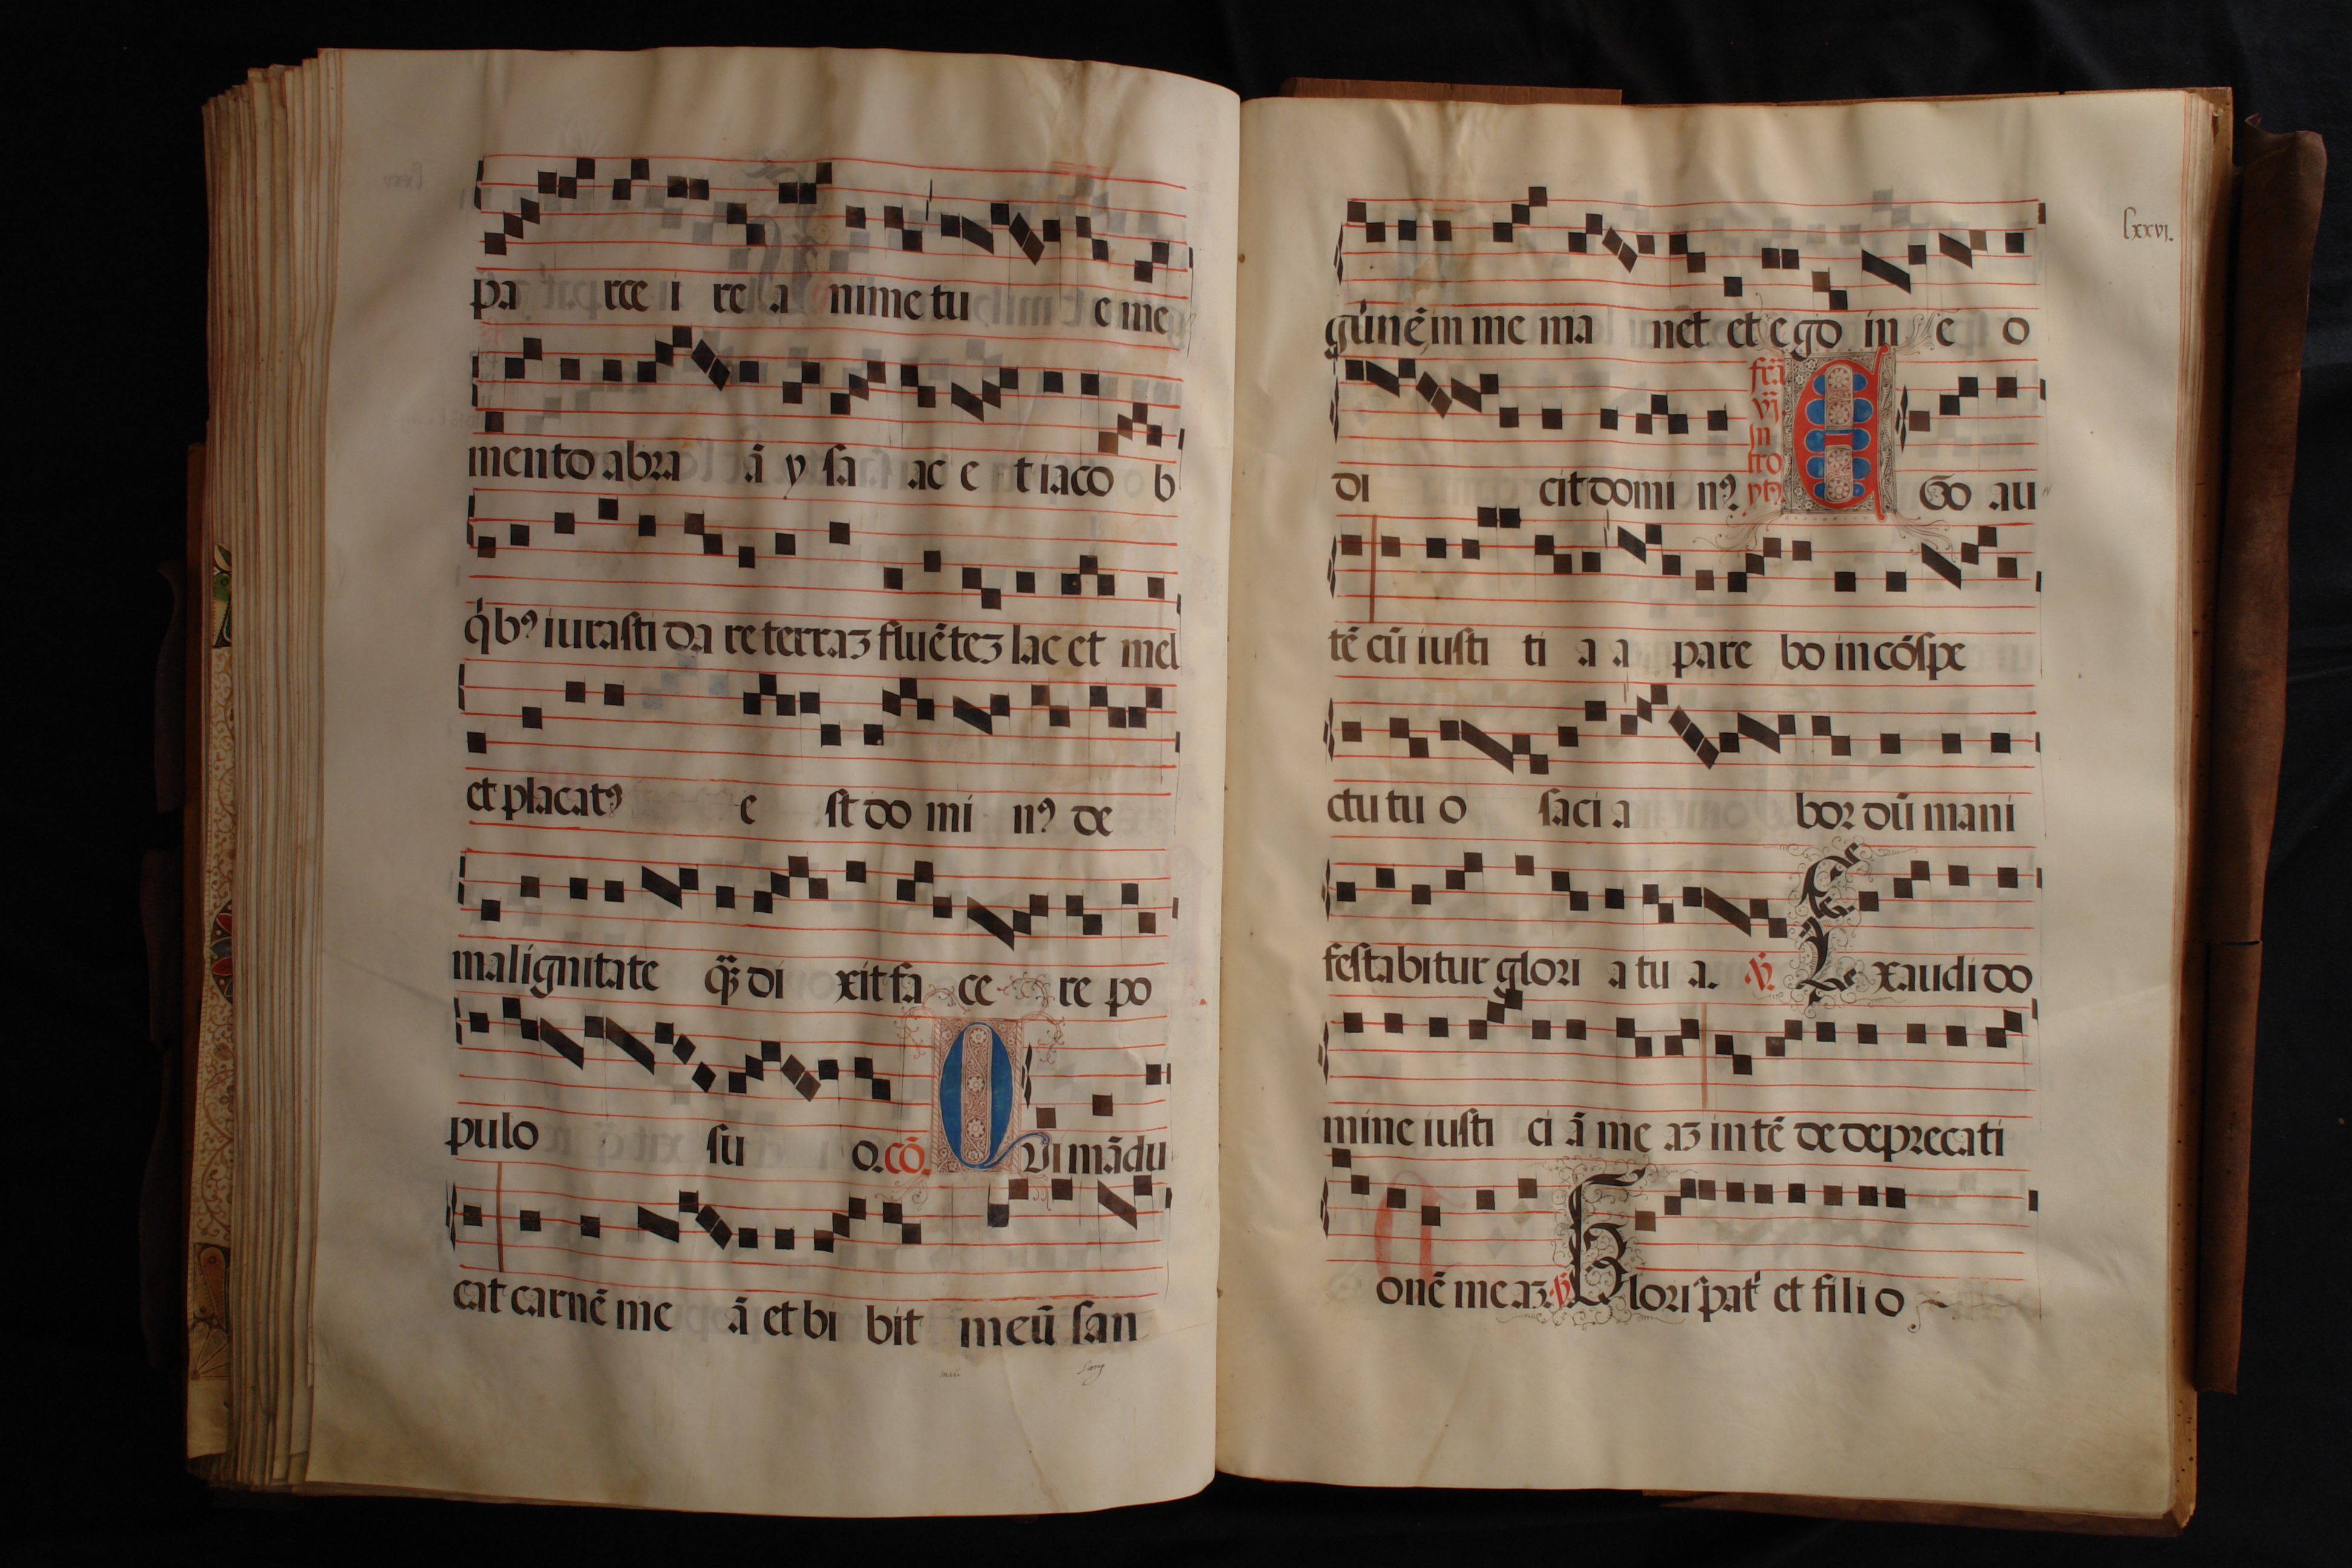 pa rce i re a nime tu e me
mento abra ã y sa ac e t iaco b
q̇bꝰ iurasti da re terraʒ fluẽteʒ lac et mel
et placatꝰ e st do mi nꝰ de
malignitate q̃ʒ di xit fa ce re po
pulo su o. cõ. Q Vi mãdu
cat carnẽ me ã et bi bit meũ san
lxxvi.
gúinẽ in me ma net et e go in e o
di cit domi nꝰ fr̃a vj. In tro yt9. E Go au
tẽ cũ iusti ti a a pare bo in cõspe
ctu tu o saci a bor dũ mani
festabitur glori a tu a. ℣. E xaudi do
mine iusti ci ã me aʒ in tẽ de deprecati
onẽ me aʒ. ℣. G lori pat̾ et fili o